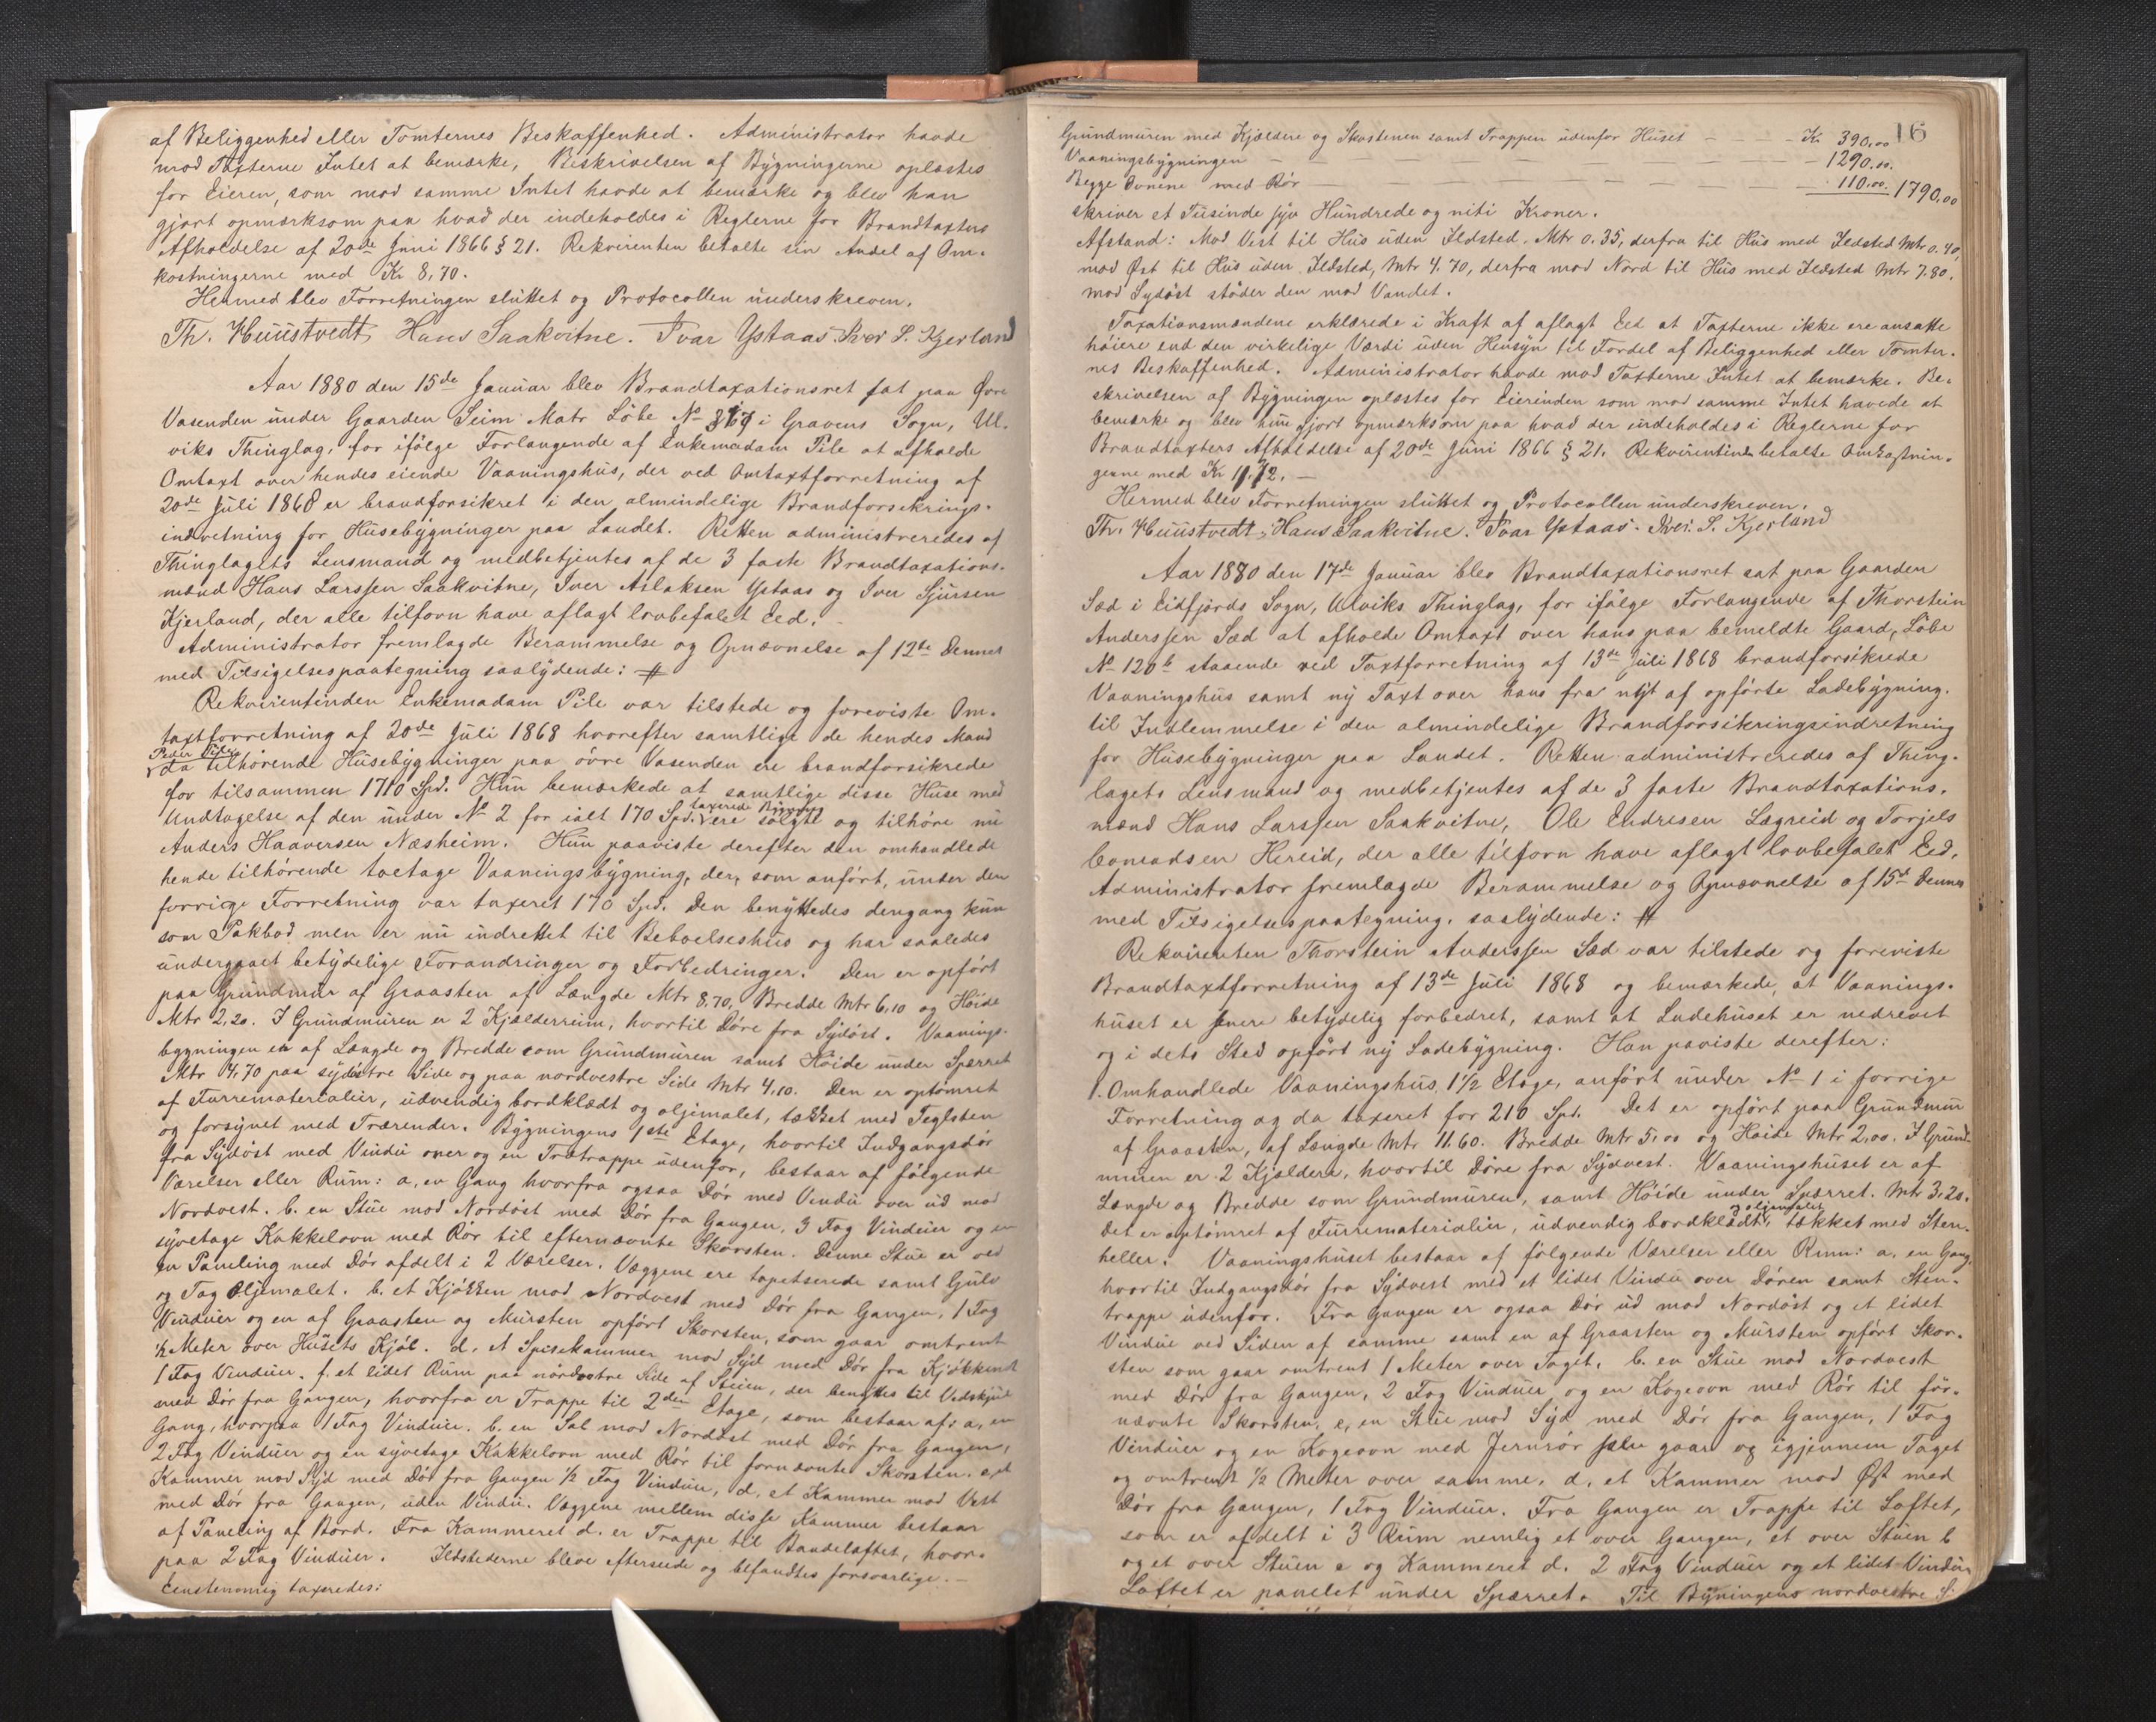 af Beliggenhed eller Tomternes Beskaffenhed. Administrator havde
mod Taxterne Intet at bemærke, Beskrivelsen af Bygningerne oplæstes
for Eieren, som mod samme Intet havde at bemærke og blev han
gjort opmærksom paa hvad der indeholdes i Reglerne for Brandtaxters
Afholdelse af 20de Juni 1866 § 21. Rekvirenten betalte sin Andel af Om-
kostningerne med Kr 8,70.
Hermed blev Forretningen sluttet og Protocollen underskreven.
Th. Huustvedt, Hans Saakvitne. Ivar Ystaas. Iver S. Kjerland
Aar 1880 den 15de Januar blev Brandtaxationsret sat paa Øvre
Vasenden under Gaarden Seim Matr Löbe No i Gravens Sogn, Ul-
viks Thinglag, for ifölge Forlangende af Enkemadam Pile at afholde
Omtaxt over hendes eiende Vaaningshus, der ved Omtaxtforretning af
20de Juli 1868 er brandforsikret i den almindelige Brandforsikrings-
indretning for Husebygninger paa Landet. Retten administreredes af
Thinglagets Lensmand og medbetjentes af de 3 faste Brandtaxations-
mænd Hans Larssen Saakvitne, Iver Aslaksen Ystaas og Iver Sjursen
Kjerland, der alle tilforn have aflagt lovbefalet Eed.
Administrator fremlagde Berammelse og Opnævnelse af 12te Dennes
med Tilsigelsespaategning saalydende: #
Rekvirentinden Enkemadam Pile var tilstede og foreviste Om-
taxtforretning af 20de Juli 1868 hvorefter samtlige de hendes Mand
Peder Pile
da tilhörende Husebygninger paa övre Vasenden ere brandforsikrede
for tilsammen 1710 Spd. Hun bemærkede at samtlige disse Huse med
Undtagelse af den under No 2 for ialt 170 Spd. taxerede Bygning ere solgte og tilhöre nu
Anders Haaversen Næsheim. Hun paaviste derefter den omhandlede
hende tilhörende toetage Vaaningsbygning, der, som anfört, under den
forrige Forretning var taxeret 170 Spd. Den benyttedes dengang kun
som Pakbod men er nu indrettet til Beboelseshus og har saaledes
undergaaet betydelige Forandringer og Forbedringer. Den er opfört
paa Grundmur af Graasten af Længde Mtr 8.70, Bredde Mtr 6,10 og Höide
Mtr 2,20. I Grundmuren er 2 Kjælderrum, hvortil Döre fra Sydöst. Vaanings-
bygningen er af Længde og Bredde som Grundmuren samt Höide under Spærret
Mtr 4,70 paa sydöstre Side og paa nordvestre Side Mtr 4,10. Den er optömret
af Furrematerialier, udvendig bordklædt og oljemalet, tækket med Teglsten
og forsynet med Trærender. Bygningens 1ste Etage, hvortil Indgangsdör
fra Sydöst med Vindu over og en Trætrappe udenfor, bestaar af fölgende
Værelser eller Rum: a, en Gang hvorfra ogsaa Dör med Vindu over ud mod
Nordvest. b. en Stue mod Nordöst med Dör fra Gangen, 3 Fag Vinduer og en
syvetage Kakkelovn med Rör til efternævnte Skorsten. Denne Stue er ved
en Paneling med Dör afdelt i 2 Værelser. Væggene ere tapetserede samt Gulv
og Tag Oljemalet. b. et Kjökken mod Nordvest med Dör fra Gangen, 1 Fag
Vinduer og en af Graasten og Mursten opfört Skorsten, som gaar omtrent
½ Meter over Husets Kjöl. d. et Spisekammer mod Syd med Dör fra Kjøkkenet
1 Fag Vinduer. f. et lidet Rum paa nordvestre Side af Stuen, der benyttes til Vedskjul
med Dör fra Gangen, hvorfra er Trappe til 2den Etage, som bestaar af: a, en
Gang, hvorpaa 1 Fag Vinduer. b. en Sal mod Nordöst med Dör fra Gangen,
2 Fag Vinduer og en syvetage Kakkelovn med Rör til fornævnte Skorsten. c, et
Kammer mod Syd med Dör fra Gangen ½ Fag Vinduer, d. et Kammer mod Vest
med Dör fra Gangen, uden Vindu. Væggene mellem disse Kammer bestaar
af Paneling af Bord. Fra Kammeret d. er Trappe til Bandeloftet, hvor-
paa 2 Fag Vinduer. Ildstederne bleve efterseede og befandtes forsvarlige. —
Eenstemmig taxeredes:
16
Grundmuren med Kjældere og Skorstenen samt Trappen udenfor Huset — — Kr. 390,00
Vaaningsbygningen — — — — — 1290.00.
Begge Ovnene med Rör — — — — — 110.00. 1790,00
skriver et Tusinde syv Hundrede og niti Kroner.
Afstand: Mod Vest til Hus uden Ildsted. Mtr 0.35, derfra til Hus med Ildsted Mtr 0.40,
mod Øst til Hus uden Ildsted, Mtr 4.70, derfra mod Nord til Hus med Ildsted Mtr 7.80.
mod Sydöst stöder den mod Vandet.
Taxationsmændene erklærede i Kraft af aflagt Eed at Taxterne ikke ere ansatte
höiere end den virkelige Værdi uden Hensyn til Fordel af Beliggenhed eller Tomter-
nes Beskaffenhed. Administrator havde mod Taxterne Intet at bemærke. Be-
skrivelsen af Bygningen oplæstes for Eierinden som mod samme Intet havde at
bemærke og blev hun gjort opmærksom paa hvad der indeholdes i Reglerne for
Brandtaxters Afholdelse af 20de Juni 1866 § 21. Rekvirentinden betalte Omkostnin-
gerne med Kr —
Hermed blev Forretningen sluttet og Protocollen underskreven.
Th. Huustvedt, Hans Saakvitne. Ivar Ystaas. Iver. S. Kjerland
Aar 1880 den 17de Januar blev Brandtaxationsret sat paa Gaarden
Sæd i Eidfjords Sogn, Ulviks Thinglag, for ifölge Forlangende af Thorstein
Anderssen Sæd at afholde Omtaxt over hans paa bemeldte Gaard, Löbe
No 120b staaende ved Taxtforretning af 13de Juli 1868 brandforsikrede
Vaaningshus samt ny Taxt over hans fra nyt af opförte Ladebygning.
til Indlemmelse i den almindelige Brandforsikringsindretning
for Husebygninger paa Landet. Retten administreredes af Thing-
lagets Lensmand og medbetjentes af de 3 faste Brandtaxations-
mænd Hans Larssen Saakvitne, Ole Endresen Lægreid og Torjels
Conradsen Hereid, der alle tilforn have aflagt lovbefalet Eed.
Administrator fremlagde Berammelse og Opnævnelse af 15de Dennes
med Tilsigelsespaategning, saalydende: #
Rekvirenten Thorstein Anderssen Sæd var tilstede og foreviste
Brandtaxtforretning af 13de Juli 1868 og bemærkede, at Vaanings-
huset er betydelig forbedret, samt at Ladehuset er nedrevet
og i dets Sted opfört ny Ladebygning. Han paaviste derefter:
1. Omhandlede Vaaningshus, 1½ Etage, anfört under No 1 i forrige
Forretning og da taxeret for 210 Spd. Det er opfört paa Grundmur
af Graasten, af Længde Mtr 11.60. Bredde Mtr 5,00 og Höide Mtr 2,00. I Grund-
muren er 2 Kjældere, hvortil Döre fra Sydvest. Vaaningshuset er af
Længde og Bredde som Grundmuren, samt Höide under Spærret. Mtr 3,20.
Det er optömret af Furrematerialier, udvendig bordklædt og oljemalet, tækket med Sten-
heller. Vaaningshuset bestaar af fölgende Værelser eller Rum: a. en Gang,
hvortil Indgangsdör fra Sydvest med et lidet Vindu over Dören samt Sten-
trappe udenfor. Fra Gangen er ogsaa Dör ud mod Nordöst og et lidet
Vindue ved Siden af samme samt en af Graasten og Mursten opfört Skor-
sten som gaar omtrent 1 Meter over Taget. b. en Stue mod Nordvest
med Dör fra Gangen, 2 Fag Vinduer, og en Kogeovn med Rör til för-
nævnte Skorsten, c, en Stue mod Syd med Dör fra Gangen, 1 Fag
Vinduer og en Kogeovn med Jernrör gaar op igjennem Taget
og omtrent ½ Meter over samme. d, et Kammer mod Øst med
Dör fra Gangen, 1 Fag Vinduer. Fra Gangen er Trappe til Loftet,
som er afdelt i 3 Rum nemlig et over Gangen, et over Stuen b
og et over Stuen c og Kammeret d. 2 Fag Vinduer og et lidet Vindu
Loftet er panelet under Spærret. Til Bygningens nordvestre